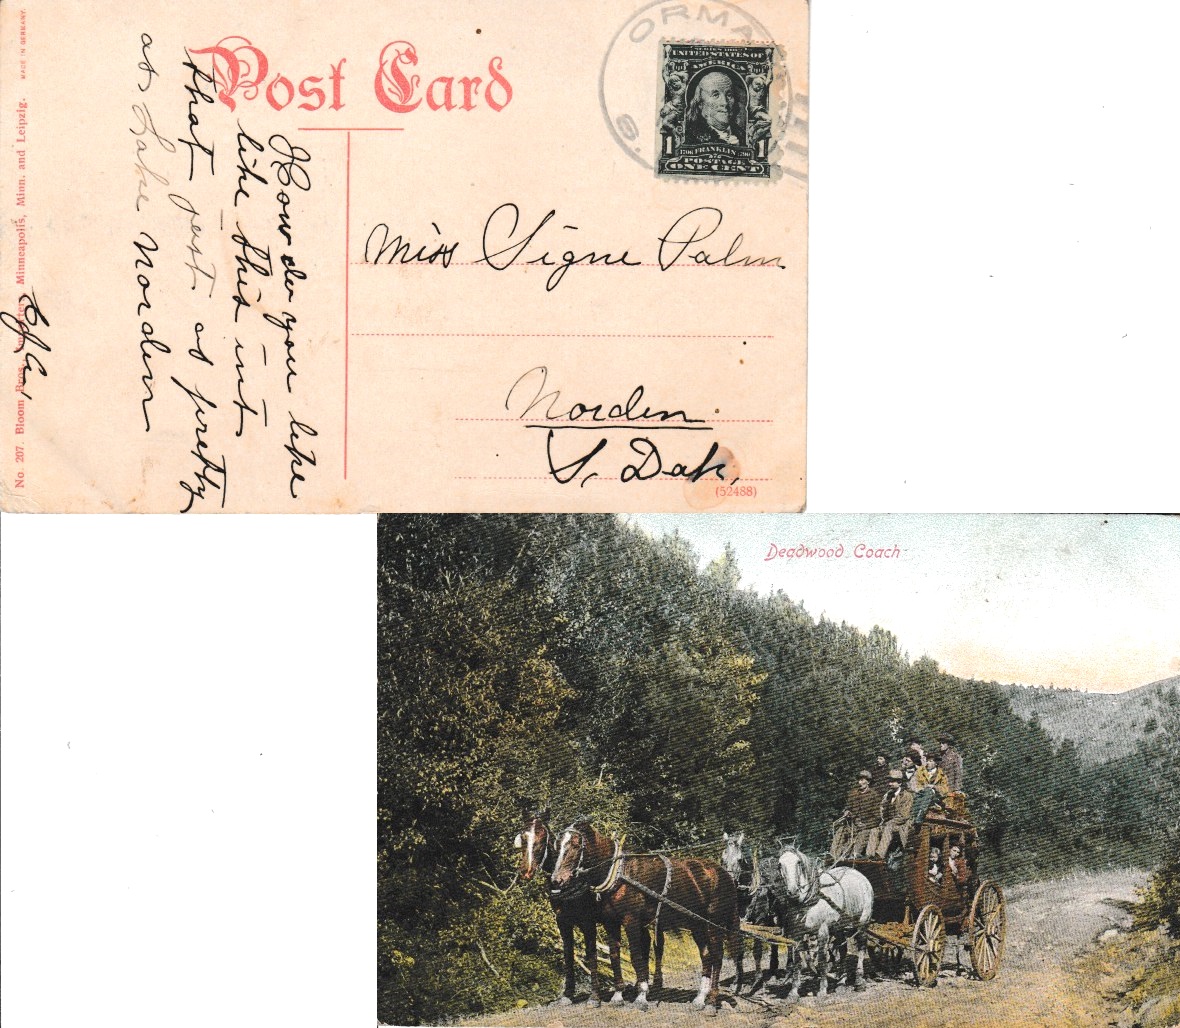 Post Card
ORMA
S.
SERIES 1902
UNITED STATES OF
AMERICA
1 FRANKLIN 1
POSTAGE
ONE CENT
How do you like
like this int
that just as pretty
as Lake Norden
Miss Signe Palm
Norden
S. Dak.
(52488)
No. 207. Bloom Bros. Minneapolis, Minn. and Leipzig. MADE IN GERMANY.
Deadwood Coach